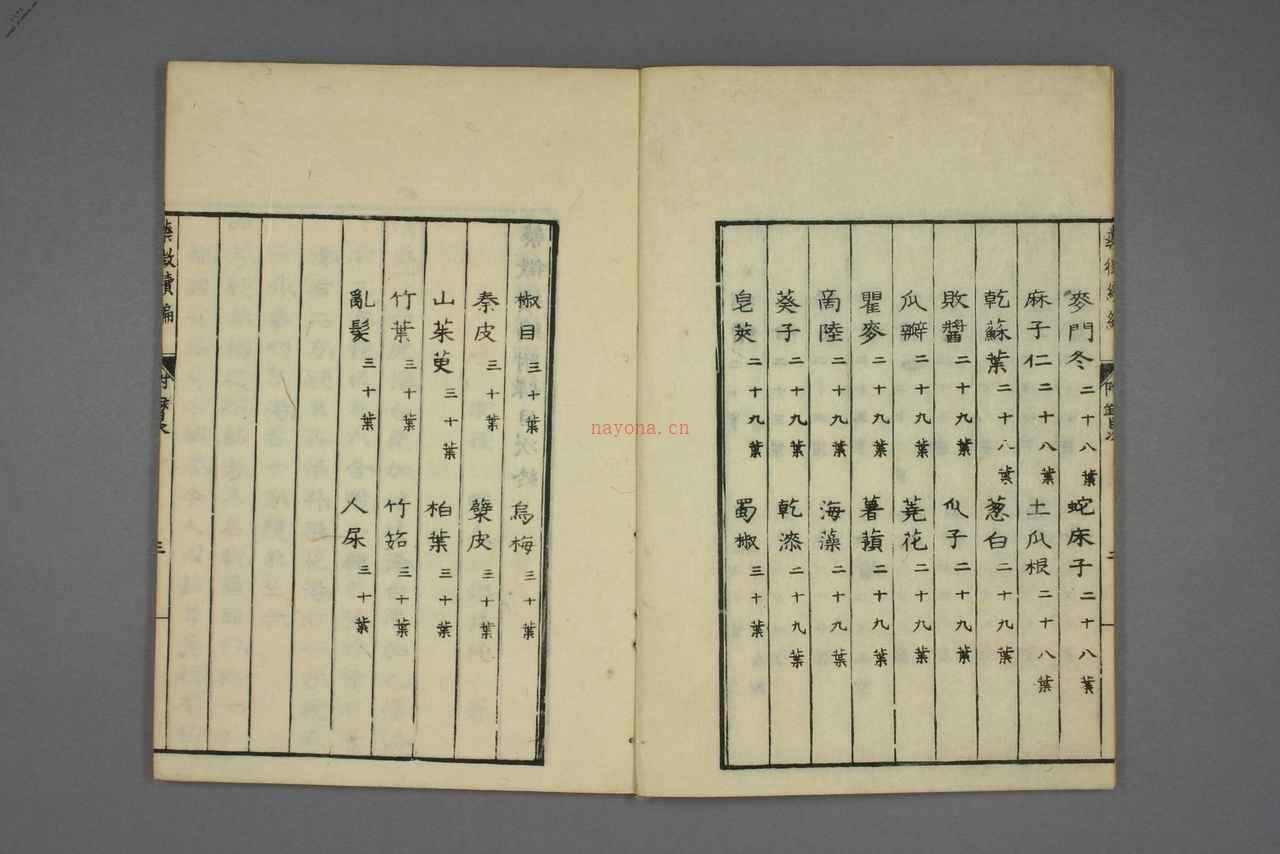 麥門冬二十八葉 蛇床子二十八葉
麻子仁二十八葉 土瓜根二十八葉
乾蘇葉二十八葉 葱白二十九葉
敗醬二十九葉 瓜子二十九葉
瓜瓣二十九葉 蕘花二十九葉
瞿麥二十九葉 薯蕷二十九葉
商陸二十九葉 海藻二十九葉
葵子二十九葉 乾漆二十九葉
皂莢二十九葉 蜀椒三十葉
椒目三十葉 烏梅三十葉
秦皮三十葉 檗皮三十葉
山茱萸三十葉 柏葉三十葉
竹葉三十葉 竹筎三十葉
亂髪三十葉 人尿三十葉
藥徵續編 附錄目次 三
nayona.cn